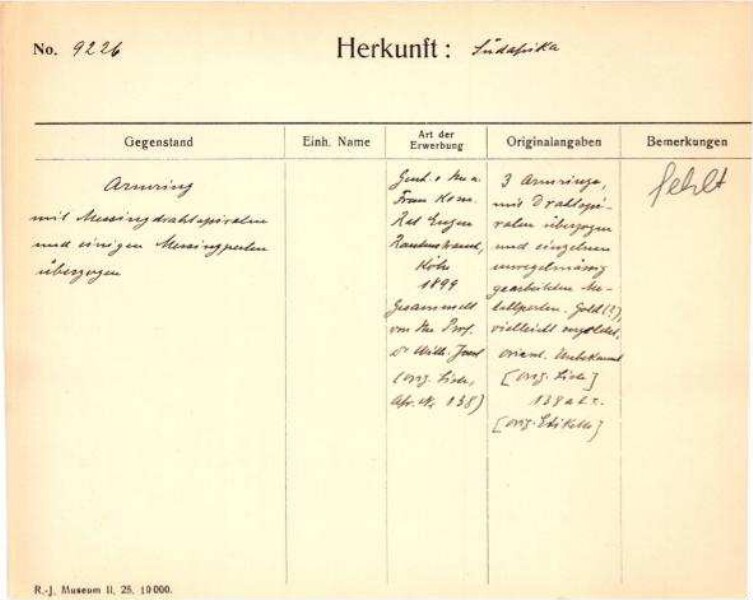 No. 9226
Herkunft: Südafrika
Gegenstand
Einh. Name
Art der Erwerbung
Originalangaben
Bemerkungen
Armring
mit Messingdrahtspiralen
und einigen Messingperlen
überzogen
Gesch. v. Hn u.
Frau Kom.
Rat Eugen
Rautenstrauch,
Köln
1899
Gesammelt
von Hn Prof.
Dr Wilh. Joest
(orig. Liste,
Afr. Nr. 138)
3 Armringe,
mit Drahtspi-
ralen überzogen
und einzelnen
unregelmässig
gearbeiteten Me-
tallperlen. Gold (?),
vielleicht vergoldet,
orient. Unbekannt
[orig. Liste]
138 a b c.
[orig. Etikette]
fehlt
R.-J. Museum II. 25. 10000.